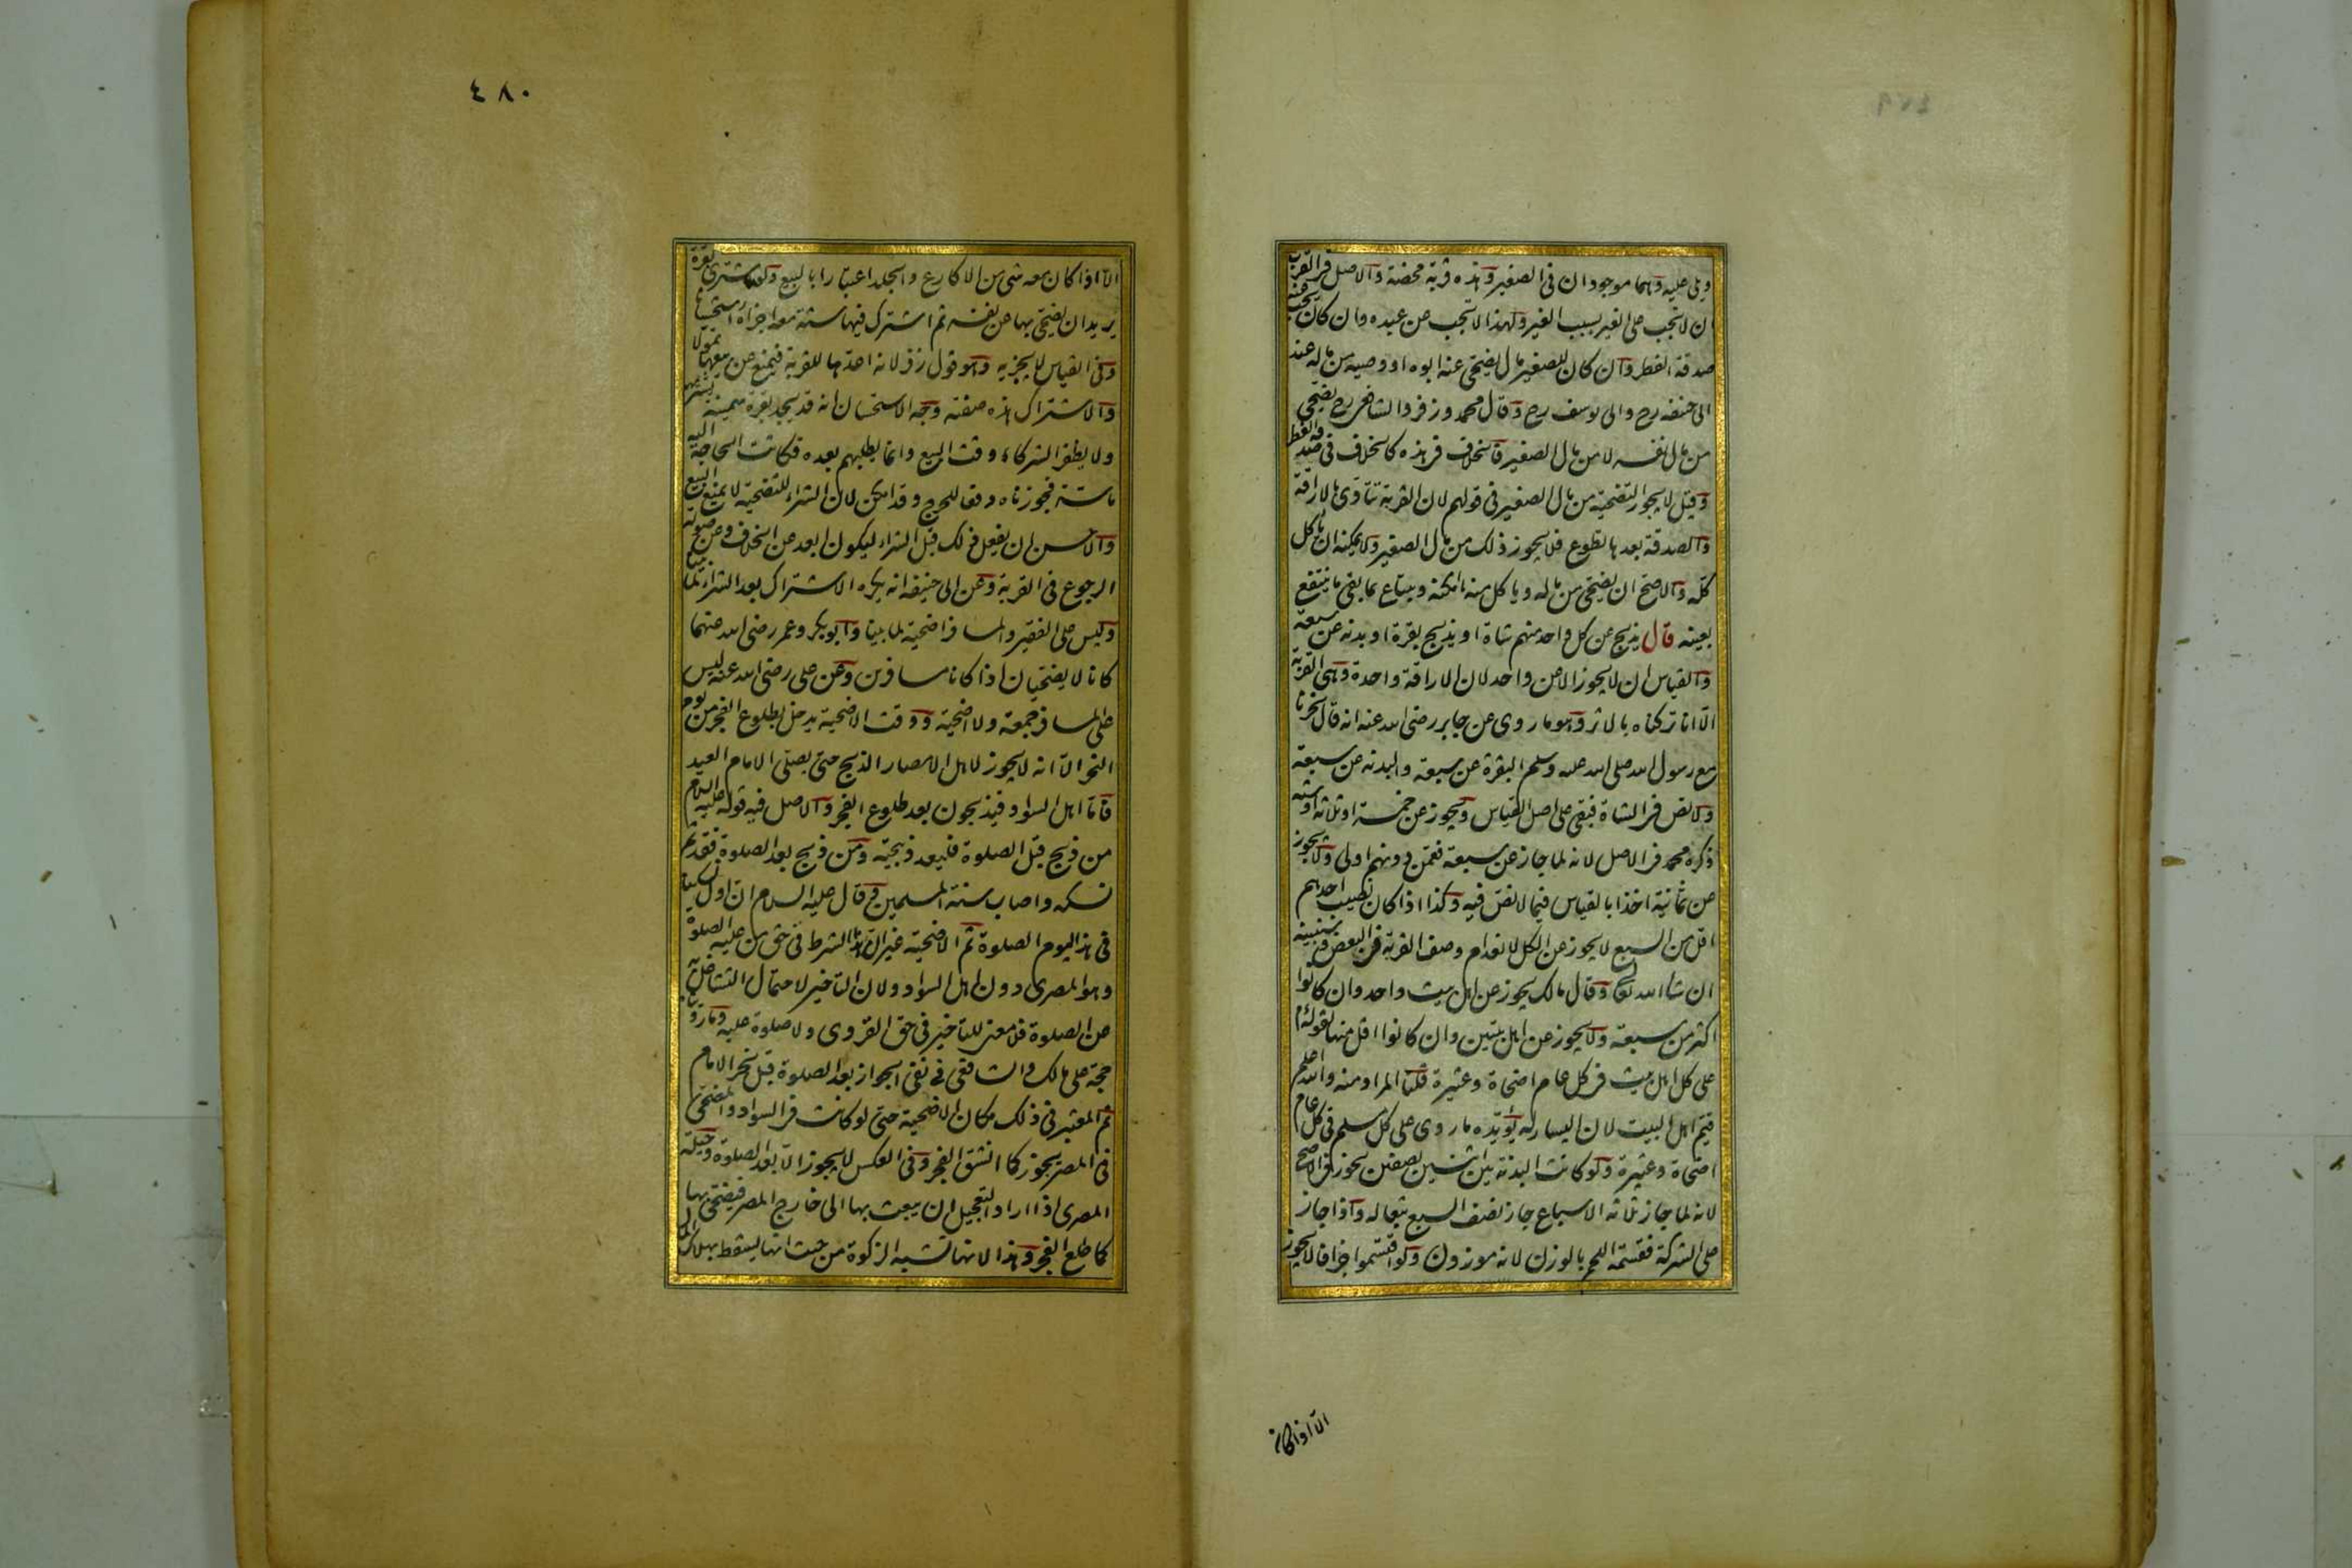 ويلى عليه وهما موجودان فى الصغير وهذه قربة محضة والاصل فى القرب
ان لا تجب على الغير بسبب الغير ولهذا لا تجب عن عبده وان كان تجب عنه
صدقة الفطر وان كان للصغير مال يضحى عنه ابوه او وصيه من ماله عند
ابى حنيفه رح وابى يوسف رح وقال محمد وزفر والشافعى رح يضحى
من مال نفسه لا من مال الصغير فالخلاف فى هذه كالخلاف فى صدقة الفطر
وقيل لا يجوز التضحية من مال الصغير فى قولهم لان القربة تتأدى بالاراقة
والصدقة بعدها تطوع فلا يجوز ذلك من مال الصغير ولا يمكنه ان ياكل
كله والاصح ان يضحى من ماله وياكل منه ما امكنه ويبتاع بما بقى ما ينتفع
بعينه قال يذبح عن كل واحد منهم شاة او يذبح بقرة او بدنة عن سبعة
والقياس ان لا يجوز الا عن واحد لان الاراقة واحدة وهى القربة
الا انا تركناه بالاثر وهو ما روى عن جابر رضى الله عنه انه قال نحرنا
مع رسول الله صلى الله عليه وسلم البقرة عن سبعة والبدنه عن سبعة
ولا نص فى الشاة فبقى على اصل القياس ويجوز عن خمسة او ثلاثة او ستة
ذكره محمد فى الاصل لانه لما جاز عن سبعة فعمن دونهم اولى ولا يجوز
عن ثمانية اخذا بالقياس فيما لا نص فيه وكذا اذا كان نصيب احدهم
اقل من السبع لا يجوز عن الكل لانعدام وصف القربة فى البعض وسنبينه
ان شا الله تعالى وقال مالك يجوز عن اهل بيت واحد وان كانوا
اكثر من سبعة ولا يجوز عن اهل بيتين وان كانوا اقل منها لقوله م
على كل اهل بيت فى كل عام اضحاة وعتيرة قلنا المراد منه والله اعلم
قيم اهل البيت لان اليسار له يؤيده ما روى على كل مسلم فى كل عام
اضحاة وعتيرة ولو كانت البدنة بين اثنين نصفين يجوز فى الاصح
لانه لما جاز ثلاثه الاسباع جاز نصف السبع تبعا له واذا جاز
على الشركة فقسمة اللحم بالوزن لانه موزون ولو اقتسموا جزافا لا يجوز
الا اذا كان
٤٨٠
الا اذا كان معه شى من الاكارع والجلد اعتبارا بالبيع ولو اشترى بقرة
يريد ان يضحى بها عن نفسه ثم اشترك فيها ستة معه اجزاه استحسانا
وفى القياس لا يجزيه وهو قول زفر لانه اعدها للقربة فيمنع عن بيعها تمولا
والاشتراك هذه صفته وجه الاستحسان انه قد يجد بقرة سمينة يشتريها
ولا يظفر الشركاء وقت البيع وانما يطلبهم بعده فكانت الحاجة اليه
ماسة فجوزناه دفعا للحرج وقد امكن لان الشراء للتضحية لا يمنع البيع
والاحسن ان يفعل ذلك قبل الشراء ليكون ابعد عن الخلاف وعن صورة
الرجوع فى القربة وعن ابى حنيفه انه يكره الاشتراك بعد الشراء لما بينا
وليس على الفقير والمسافر اضحية لما بينا وابو بكر وعمر رضى الله عنهما
كانا لا يضحيان اذا كانا مسافرين وعن على رضى الله عنه ليس
على المسافر جمعة ولا اضحية ووقت الاضحية يدخل بطلوع الفجر من يوم
النحر الا انه لا يجوز لاهل الامصار الذبح حتى يصلى الامام العيد
فاما اهل السواد فيذبحون بعد طلوع الفجر والاصل فيه قوله عليه السلام
من ذبح قبل الصلوة فليعد ذبيحته ومن ذبح بعد الصلوة فقد تم
نسكه واصاب سنة المسلمين وقال عليه السلام ان اول نسكنا
فى هذا اليوم الصلوة ثم الاضحية غير ان هذا الشرط فى حق من عليه الصلوة
وهو المصرى دون اهل السواد ولان التاخير لاحتمال التشاغل به
عن الصلوة فلا معنى للتاخير فى حق القروى ولا صلوة عليه وما روينا
حجة على مالك والشافعى فى نفى الجواز بعد الصلوة قبل نحر الامام
ثم المعتبر فى ذلك مكان الاضحية حتى لو كانت فى السواد والمضحى
فى المصر يجوز كما انشق الفجر وفى العكس لا يجوز الا بعد الصلوة وحيلة
المصرى اذا اراد التعجيل ان يبعث بها الى خارج المصر فيضحى بها
كما طلع الفجر وهذا لانها تشبه الزكوة من حيث انها يسقط بهلاك المال